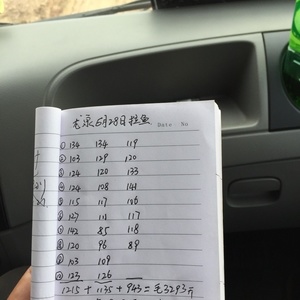 6月28日拉鱼 Date: No
① 134 134 119
② 103 129 120
③ 124 120 133
④ 124 108 141
⑤ 115 117 106
⑥ 127 111 117
⑦ 142 85 118
⑧ 120 96 89
⑨ 103 109
⑩ 123 126
1215 + 1135 + 943 = 毛3293斤